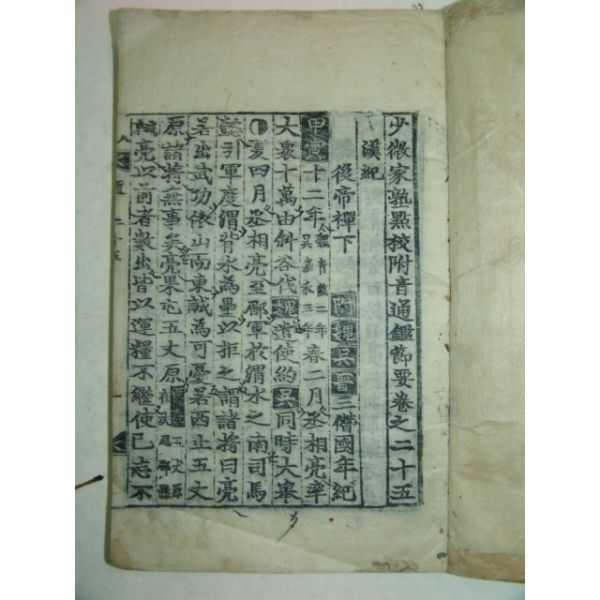 少微家塾點校附音通鑑節要卷之二十五
漢紀
後帝禪下 附魏吳晉三僭國年紀
甲寅十二年魏青龍二年吳嘉禾三年春二月丞相亮率
大衆十萬由斜谷伐魏遣使約吳同時大舉
夏四月丞相亮至郿軍於渭水之南司馬
懿引軍度渭背水爲壘以拒之謂諸將曰亮
若出武功依山而東誠爲可憂若西止五丈
原諸將無事矣亮果屯五丈原五丈原
亮以前者數出皆以運糧不繼使己志不